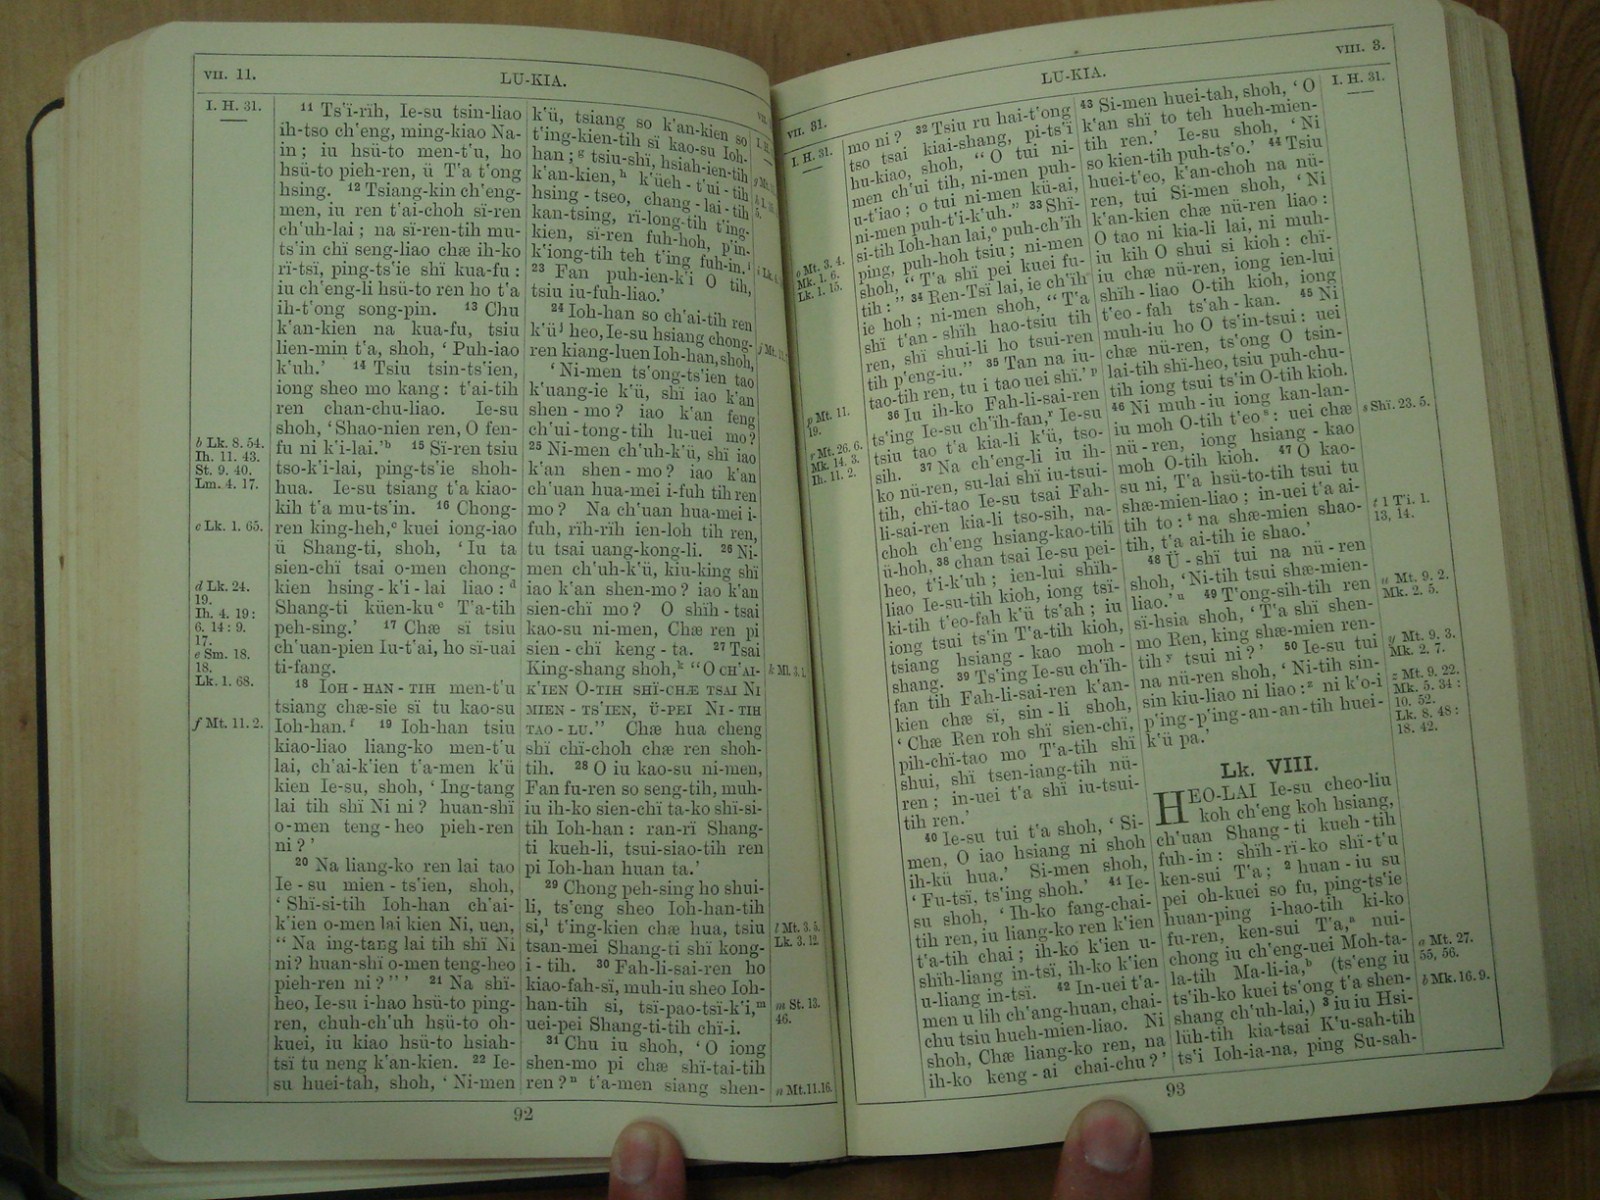 VII. 11.
LU-KIA.
I. H. 31.
11 Ts'ï-rïh, Ie-su tsin-liao
ih-tso ch'eng, ming-kiao Na-
in; iu hsü-to men-t'u, ho
hsü-to pieh-ren, ü T'a t'ong
hsing. 12 Tsiang-kin ch'eng-
men, iu ren t'ai-choh sï-ren
ch'uh-lai; na sï-ren-tih mu-
ts'in chï seng-liao chæ ih-ko
rï-tsï, ping-ts'ie shï kua-fu:
iu ch'eng-li hsü-to ren ho t'a
ih-t'ong song-pin. 13 Chu
k'an-kien na kua-fu, tsiu
lien-min t'a, shoh, 'Puh-iao
k'uh.' 14 Tsiu tsin-ts'ien,
iong sheo mo kang: t'ai-tih
ren chan-chu-liao. Ie-su
shoh, 'Shao-nien ren, O fen-
fu ni k'i-lai.'b 15 Sï-ren tsiu
tso-k'i-lai, ping-ts'ie shoh-
hua. Ie-su tsiang t'a kiao-
kih t'a mu-ts'in. 16 Chong-
ren king-heh,c kuei iong-iao
ü Shang-ti, shoh, 'Iu ta
sien-chï tsai o-men chong-
kien hsing-k'i-lai liao:d
Shang-ti küen-kue T'a-tih
peh-sing.' 17 Chæ sï tsiu
ch'uan-pien Iu-t'ai, ho sï-uai
ti-fang.
18 IOH-HAN-TIH men-t'u
tsiang chæ-sie sï tu kao-su
Ioh-han.f 19 Ioh-han tsiu
kiao-liao liang-ko men-t'u
lai, ch'ai-k'ien t'a-men k'ü
kien Ie-su, shoh, 'Ing-tang
lai tih shï Ni ni? huan-shï
o-men teng-heo pieh-ren
ni?'
20 Na liang-ko ren lai tao
Ie-su mien-ts'ien, shoh,
'Shï-si-tih Ioh-han ch'ai-
k'ien o-men lai kien Ni, uen,
"Na ing-tang lai tih shï Ni
ni? huan-shï o-men teng-heo
pieh-ren ni?"' 21 Na shï-
heo, Ie-su i-hao hsü-to ping-
ren, chuh-ch'uh hsü-to oh-
kuei, iu kiao hsü-to hsiah-
tsï tu neng k'an-kien. 22 Ie-
su huei-tah, shoh, 'Ni-men
b Lk. 8. 54.
Ih. 11. 43.
St. 9. 40.
Lm. 4. 17.
c Lk. 1. 65.
d Lk. 24.
19.
Ih. 4. 19:
6. 14: 9.
17.
e Sm. 18.
18.
Lk. 1. 68.
f Mt. 11. 2.
k'ü, tsiang so k'an-kien so
t'ing-kien-tih sï kao-su Ioh-
han;g tsiu-shï, hsiah-ien-tih
k'an-kien,h k'üeh-t'ui-tih
hsing-tseo, chang-lai-tih
kan-tsing, rï-long-tih t'ing-
kien, sï-ren fuh-hoh, p'in-
k'iong-tih teh t'ing fuh-in.i
23 Fan puh-ien-k'i O tih,
tsiu iu-fuh-liao.'
24 Ioh-han so ch'ai-tih ren
k'üj heo, Ie-su hsiang chong-
ren kiang-luen Ioh-han, shoh,
'Ni-men ts'ong-ts'ien tao
k'uang-ie k'ü, shï iao k'an
shen-mo? iao k'an feng
ch'ui-tong-tih lu-uei mo?
25 Ni-men ch'uh-k'ü, shï iao
k'an shen-mo? iao k'an
ch'uan hua-mei i-fuh tih ren
mo? Na ch'uan hua-mei i-
fuh, rïh-rïh ien-loh tih ren,
tu tsai uang-kong-li. 26 Ni-
men ch'uh-k'ü, kiu-king shï
iao k'an shen-mo? iao k'an
sien-chï mo? O shïh-tsai
kao-su ni-men, Chæ ren pi
sien-chï keng-ta. 27 Tsai
King-shang shoh,k "O CH'AI-
K'IEN O-TIH SHÏ-CHÆ TSAI NI
MIEN-TS'IEN, Ü-PEI NI-TIH
TAO-LU." Chæ hua cheng
shï chï-choh chæ ren shoh-
tih. 28 O iu kao-su ni-men,
Fan fu-ren so seng-tih, muh-
iu ih-ko sien-chï ta-ko shï-si-
tih Ioh-han: ran-rï Shang-
ti kueh-li, tsui-siao-tih ren
pi Ioh-han huan ta.'
29 Chong peh-sing ho shui-
li, ts'eng sheo Ioh-han-tih
si,l t'ing-kien chæ hua, tsiu
tsan-mei Shang-ti shï kong-
i-tih. 30 Fah-li-sai-ren ho
kiao-fah-sï, muh-iu sheo Ioh-
han-tih si, tsï-pao-tsï-k'i,m
uei-pei Shang-ti-tih chï-i.
31 Chu iu shoh, 'O iong
shen-mo pi chæ shï-tai-tih
ren?n t'a-men siang shen-
k Ml. 3. 1.
l Mt. 3. 5.
Lk. 3. 12.
m St. 13.
46.
n Mt. 11. 16.
92
VII. 31.
LU-KIA.
VIII. 3.
I. H. 31.
o Mt. 3. 4.
Mk. 1. 6.
Lk. 1. 15.
p Mt. 11.
19.
r Mt. 26. 6.
Mk. 14. 3.
Ih. 11. 2.
mo ni? 32 Tsiu ru hai-t'ong
tso tsai kiai-shang, pi-ts'ï
hu-kiao, shoh, "O tui ni-
men ch'ui tih, ni-men puh-
u-t'iao; o tui ni-men kü-ai,
ni-men puh-t'i-k'uh." 33 Shï-
si-tih Ioh-han lai,o puh-ch'ïh
ping, puh-hoh tsiu; ni-men
shoh, "T'a shï pei kuei fu-
tih:" 34 Ren-Tsï lai, ie ch'ïh
ie hoh; ni-men shoh, "T'a
shï t'an-shïh hao-tsiu tih
ren, shï shui-li ho tsui-ren
tih p'eng-iu." 35 Tan na iu-
tao-tih ren, tu i tao uei shï.'p
36 Iu ih-ko Fah-li-sai-ren
ts'ing Ie-su ch'ïh-fan,r Ie-su
tsiu tao t'a kia-li k'ü, tso-
sih. 37 Na ch'eng-li iu ih-
ko nü-ren, su-lai shï iu-tsui-
tih, chï-tao Ie-su tsai Fah-
li-sai-ren kia-li tso-sih, na-
choh ch'eng hsiang-kao-tih
ü-hoh, 38 chan tsai Ie-su pei-
heo, t'i-k'uh; ien-lui shïh-
liao Ie-su-tih kioh, iong tsï-
ki-tih t'eo-fah k'ü ts'ah; iu
iong tsui ts'in T'a-tih kioh,
tsiang hsiang-kao moh-
shang. 39 Ts'ing Ie-su ch'ïh-
fan tih Fah-li-sai-ren k'an-
kien chæ sï, sin-li shoh,
'Chæ Ren roh shï sien-chï,
pih-chï-tao mo T'a-tih shï
shui, shï tsen-iang-tih nü-
ren; in-uei t'a shï iu-tsui-
tih ren.'
40 Ie-su tui t'a shoh, 'Si-
men, O iao hsiang ni shoh
ih-kü hua.' Si-men shoh,
'Fu-tsï, ts'ing shoh.' 41 Ie-
su shoh, 'Ih-ko fang-chai-
tih ren, iu liang-ko ren k'ien
t'a-tih chai; ih-ko k'ien u-
shïh-liang in-tsï, ih-ko k'ien
u-liang in-tsï. 42 In-uei t'a-
men u lih ch'ang-huan, chai-
chu tsiu hueh-mien-liao. Ni
shoh, Chæ liang-ko ren, na
ih-ko keng-ai chai-chu?'
43 Si-men huei-tah, shoh, 'O
k'an shï to teh hueh-mien-
tih ren.' Ie-su shoh, 'Ni
so kien-tih puh-ts'o.' 44 Tsiu
huei-t'eo, k'an-choh na nü-
ren, tui Si-men shoh, 'Ni
k'an-kien chæ nü-ren liao:
O tao ni kia-li lai, ni muh-
iu kih O shui si kioh: chï-
iu chæ nü-ren, iong ien-lui
shïh-liao O-tih kioh, iong
t'eo-fah ts'ah-kan. 45 Ni
muh-iu ho O ts'in-tsui: uei
chæ nü-ren, ts'ong O tsin-
lai-tih shï-heo, tsiu puh-chu-
tih iong tsui ts'in O-tih kioh.
46 Ni muh-iu iong kan-lan-
iu moh O-tih t'eos: uei chæ
nü-ren, iong hsiang-kao
moh O-tih kioh. 47 O kao-
su ni, T'a hsü-to-tih tsui tu
shæ-mien-liao; in-uei t'a ai-
tih to:t na shæ-mien shao-
tih, t'a ai-tih ie shao.'
48 Ü-shï tui na nü-ren
shoh, 'Ni-tih tsui shæ-mien-
liao.'u 49 T'ong-sih-tih ren
sï-hsia shoh, 'T'a shï shen-
mo Ren, king shæ-mien ren-
tihy tsui ni?' 50 Ie-su tui
na nü-ren shoh, 'Ni-tih sin-
sin kiu-liao ni liao:z ni k'o-i
p'ing-p'ing-an-an-tih huei-
k'ü pa.'
Lk. VIII.
HEO-LAI Ie-su cheo-liu
koh ch'eng koh hsiang,
ch'uan Shang-ti kueh-tih
fuh-in: shïh-rï-ko shï-t'u
ken-sui T'a; 2 huan-iu su
pei oh-kuei so fu, ping-ts'ie
huan-ping i-hao-tih ki-ko
fu-ren, ken-sui T'a,a nui-
chong iu ch'eng-uei Moh-ta-
la-tih Ma-li-ia,b (ts'eng iu
ts'ih-ko kuei ts'ong t'a shen-
shang ch'uh-lai,) 3 iu iu Hsi-
lüh-tih kia-tsai K'u-sah-tih
ts'i Ioh-ia-na, ping Su-sah-
I. H. 31.
s Shï. 23. 5.
t 1 T'i. 1.
13, 14.
u Mt. 9. 2.
Mk. 2. 5.
y Mt. 9. 3.
Mk. 2. 7.
z Mt. 9. 22.
Mk. 5. 34:
10. 52.
Lk. 8. 48:
18. 42.
a Mt. 27.
55, 56.
b Mk. 16. 9.
93